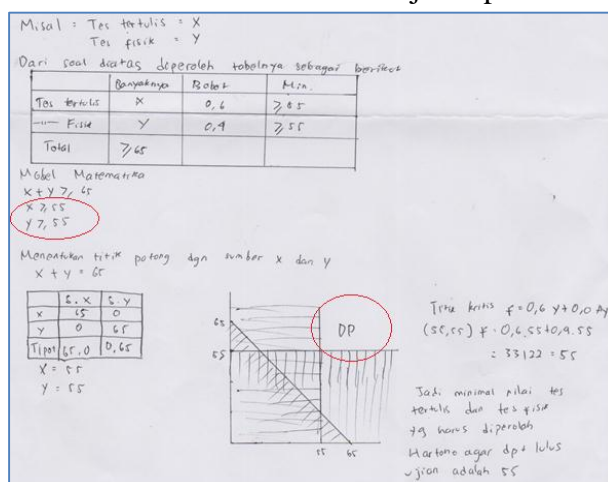 Misal = Tes tertulis = X
Tes fisik = Y
Dari soal diatas diperoleh tabelnya sebagai berikut
Banyaknya Bobot Min.
Tes tertulis X 0,6 ≥ 55
-"- Fisik Y 0,4 ≥ 55
Total ≥ 65
Model Matematika
X + Y ≥ 65
X ≥ 55
Y ≥ 55
Menentukan titik potong dgn sumber X dan Y
X + Y = 65
S. X S. Y
X 65 0
Y 0 65
Tipot 65,0 0,65
X = 55
Y = 55
65
55
DP
55 65
Titik kritis f = 0,6 Y + 0,0 Ay
(55,55) f = 0,6.55+0,4.55
= 33122 = 55
Jadi minimal nilai tes
tertulis dan tes fisik
yg harus diperoleh
Hartono agar dpt lulus
ujian adalah 55